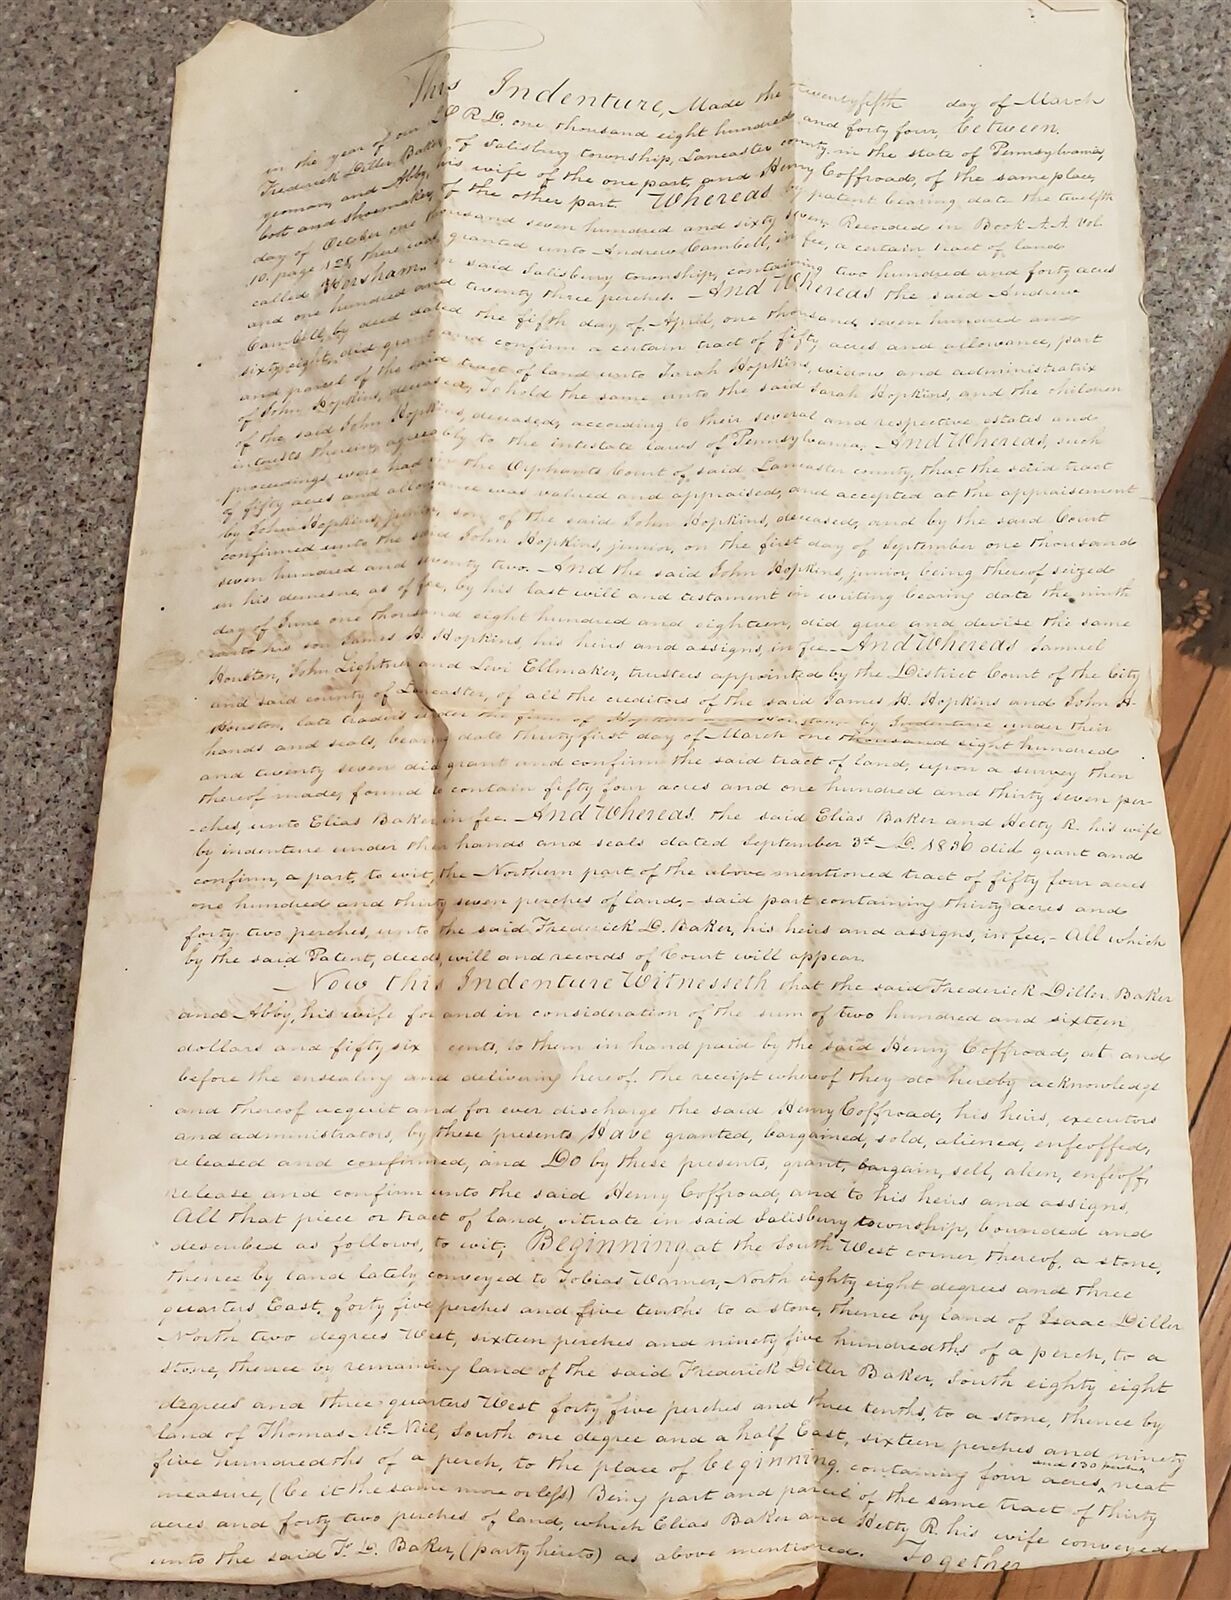 This Indenture, Made the twentyfifth day of March
in the year of our LORD. one thousand eight hundred and forty four, between
Frederick Diller Baker of Salisbury township, Lancaster county in the state of Pennsylvania,
yeoman, and Abby, his wife of the one part, and Henry Coffroad, of the same place,
boot and shoemaker, of the other part. Whereas by patent bearing date the twelfth
day of October one thousand seven hundred and sixty seven, Recorded in Book A.A. Vol
10, page 128, there was granted unto Andrew Cambell, in fee, a certain tract of land
called Horsham, in said Salisbury township, containing two hundred and forty acres
and one hundred and twenty three perches. And Whereas the said Andrew
Cambell, by deed dated the fifth day of April, one thousand seven hundred and
sixty eight, did grant and confirm a certain tract of fifty acres and allowance, part
and parcel of the said tract of land unto Sarah Hopkins, widow and administratrix
of John Hopkins, deceased, To hold the same unto the said Sarah Hopkins, and the children
of the said John Hopkins, deceased, according to their several and respective estates and
interests therein, agreeably to the intestate laws of Pennsylvania. And Whereas, such
proceedings were had in the Orphants Court of said Lancaster county, that the said tract
of fifty acres and allowance was valued and appraised, and accepted at the appraisement
by John Hopkins, junior, son of the said John Hopkins, deceased, and by the said Court
confirmed unto the said John Hopkins, junior, on the first day of September one thousand
seven hundred and seventy two. And the said John Hopkins, junior, being thereof seized
in his demesne, as of fee, by his last will and testament in writing bearing date the ninth
day of June one thousand eight hundred and eighteen, did give and devise the same
unto his son James H. Hopkins, his heirs and assigns, in fee. And Whereas Samuel
Houston, John Lightner and Levi Ellmaker, trustees appointed by the District Court of the City
and said county of Lancaster, of all the creditors of the said James H. Hopkins and John H.
Houston, late traders under the firm of Hopkins and Houston, by Indenture under their
hands and seals, bearing date thirtyfirst day of March one thousand eight hundred
and twenty seven did grant and confirm the said tract of land, upon a survey then
thereof made, found to contain fifty four acres and one hundred and thirty seven per-
-ches, unto Elias Baker in fee. And Whereas the said Elias Baker and Hetty R. his wife
by indenture under their hands and seals dated September 3d D. 1836 did grant and
confirm, a part, to wit, the Northern part of the above mentioned tract of fifty four acres
one hundred and thirty seven perches of land, - said part containing thirty acres and
forty two perches, unto the said Frederick D. Baker, his heirs and assigns, in fee. - All which
by the said Patent, deeds, will and records of Court will appear.
Now this Indenture Witnesseth that the said Frederick Diller Baker
and Abby, his wife for and in consideration of the sum of two hundred and sixteen
dollars and fifty six cents, to them in hand paid by the said Henry Coffroad, at and
before the ensealing and delivering hereof. the receipt whereof they do hereby acknowledge
and thereof acquit and for ever discharge the said Henry Coffroad, his heirs, executors
and administrators, by these presents Have granted, bargained, sold, aliened, enfeoffed,
released and confirmed, and Do by these presents, grant, bargain, sell, alien, enfeoff,
release and confirm unto the said Henry Coffroad, and to his heirs and assigns,
All that piece or tract of land, situate in said Salisbury township, bounded and
described as follows, to wit; Beginning at the South West corner thereof, a stone,
thence by land lately conveyed to Tobias Warner, North eighty eight degrees and three
quarters East, forty five perches and five tenths to a stone, thence by land of Isaac Diller
North two degrees West, sixteen perches and ninety five hundredths of a perch, to a
stone, thence by remaining land of the said Frederick Diller Baker, South eighty eight
degrees and three quarters West forty five perches and three tenths, to a stone, thence by
land of Thomas Mc Nee, South one degree and a half East, sixteen perches and ninety
five hundredths of a perch, to the place of beginning, containing four acres, and 130 perches neat
measure, (be it the same more or less) Being part and parcel of the same tract of thirty
acres and forty two perches of land, which Elias Baker and Hetty R. his wife conveyed
unto the said F. D. Baker, (party hereto) as above mentioned. Together